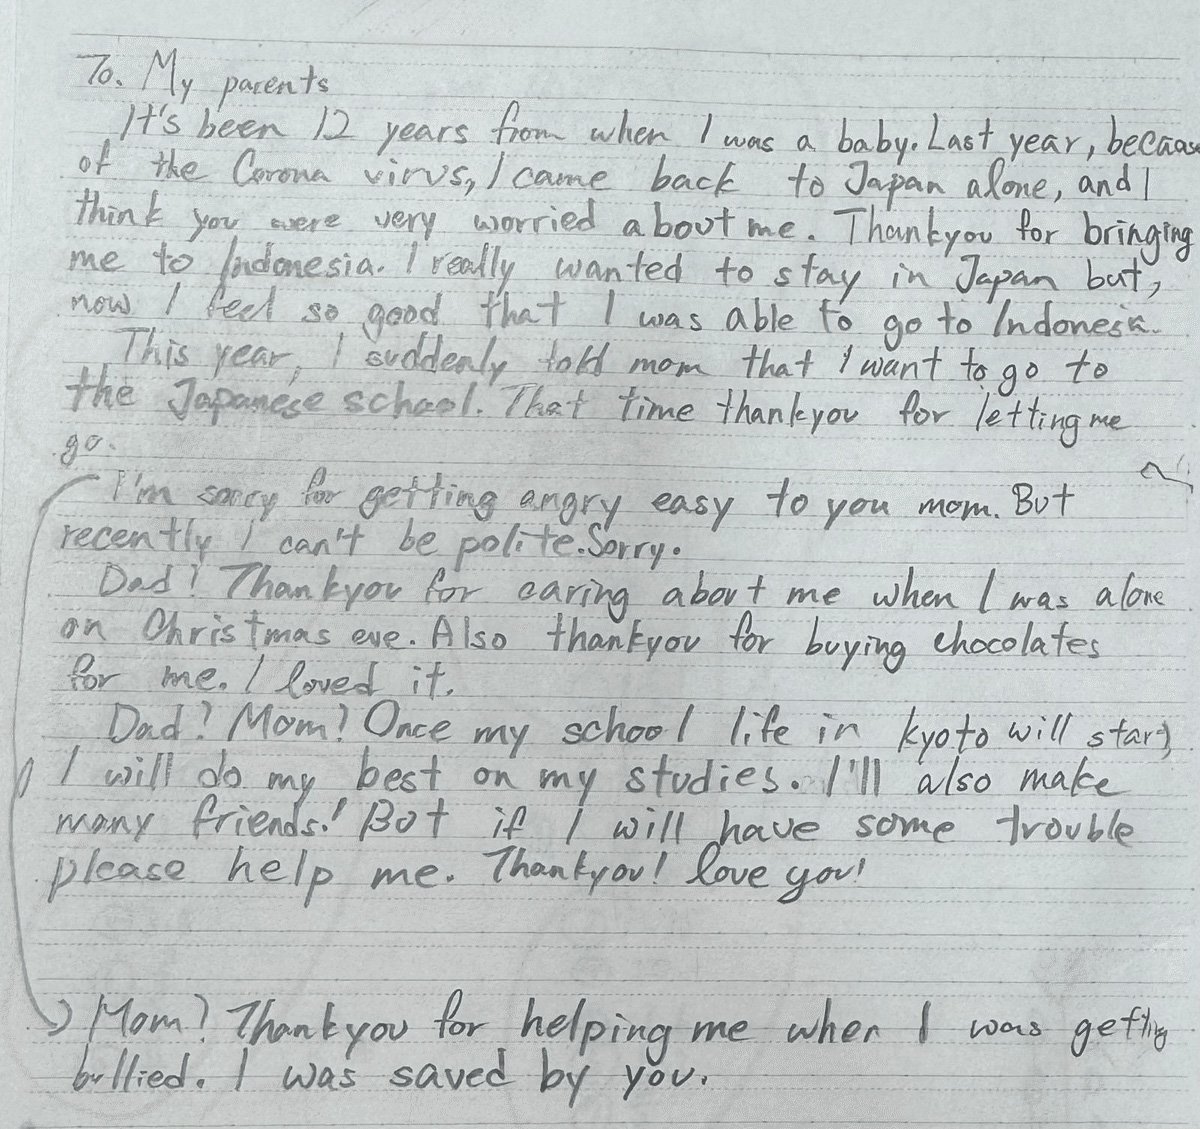 To. My parents
It's been 12 years from when I was a baby. Last year, because
of the Corona virus, I came back to Japan alone, and I
think you were very worried about me. Thankyou for bringing
me to Indonesia. I really wanted to stay in Japan but,
now I feel so good that I was able to go to Indonesia.
This year, I suddenly told mom that I want to go to
the Japanese school. That time thankyou for letting me
go.
I'm sorry for getting angry easy to you mom. But
recently I can't be polite. Sorry.
Dad! Thankyou for caring about me when I was alone
on Christmas eve. Also thankyou for buying chocolates
for me. I loved it.
Dad! Mom! Once my school life in kyoto will start,
I will do my best on my studies. I'll also make
many friends! But if I will have some trouble
please help me. Thankyou! love you!
Mom! Thankyou for helping me when I was getting
bullied. I was saved by you.